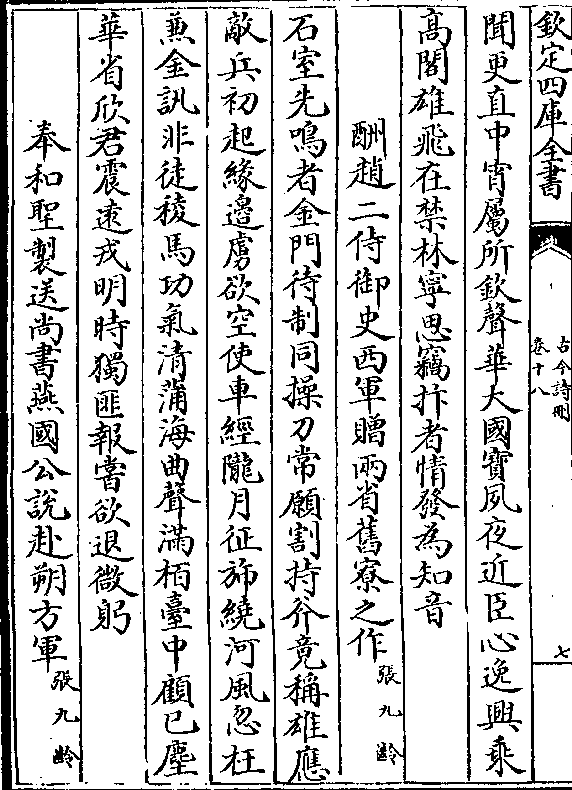 欽定四庫全書
古今詩刪
卷十八
七
聞更直中宵屬所欽聲華大國寶夙夜近臣心逸興乘
高閣雄飛在禁林寧思竊抃者情發為知音
酬趙二侍御史西軍贈兩省舊寮之作 張九齡
石室先鳴者金門待制同操刀常願割持斧竟稱雄應
敵兵初起緣邊虜欲空使車經隴月征斾繞河風忽枉
兼金訊非徒秣馬功氣清蒲海曲聲滿栢臺中顧已塵
華省欣君震遠戎明時獨匪報嘗欲退微躬
奉和聖製送尚書燕國公說赴朔方軍 張九齡